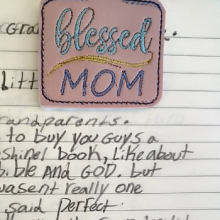 Gra
blessed
MOM
Litt
randparents.
to buy you guys a
shine! book, like about
bible AND GOD. but
wasent really one
said Perfect